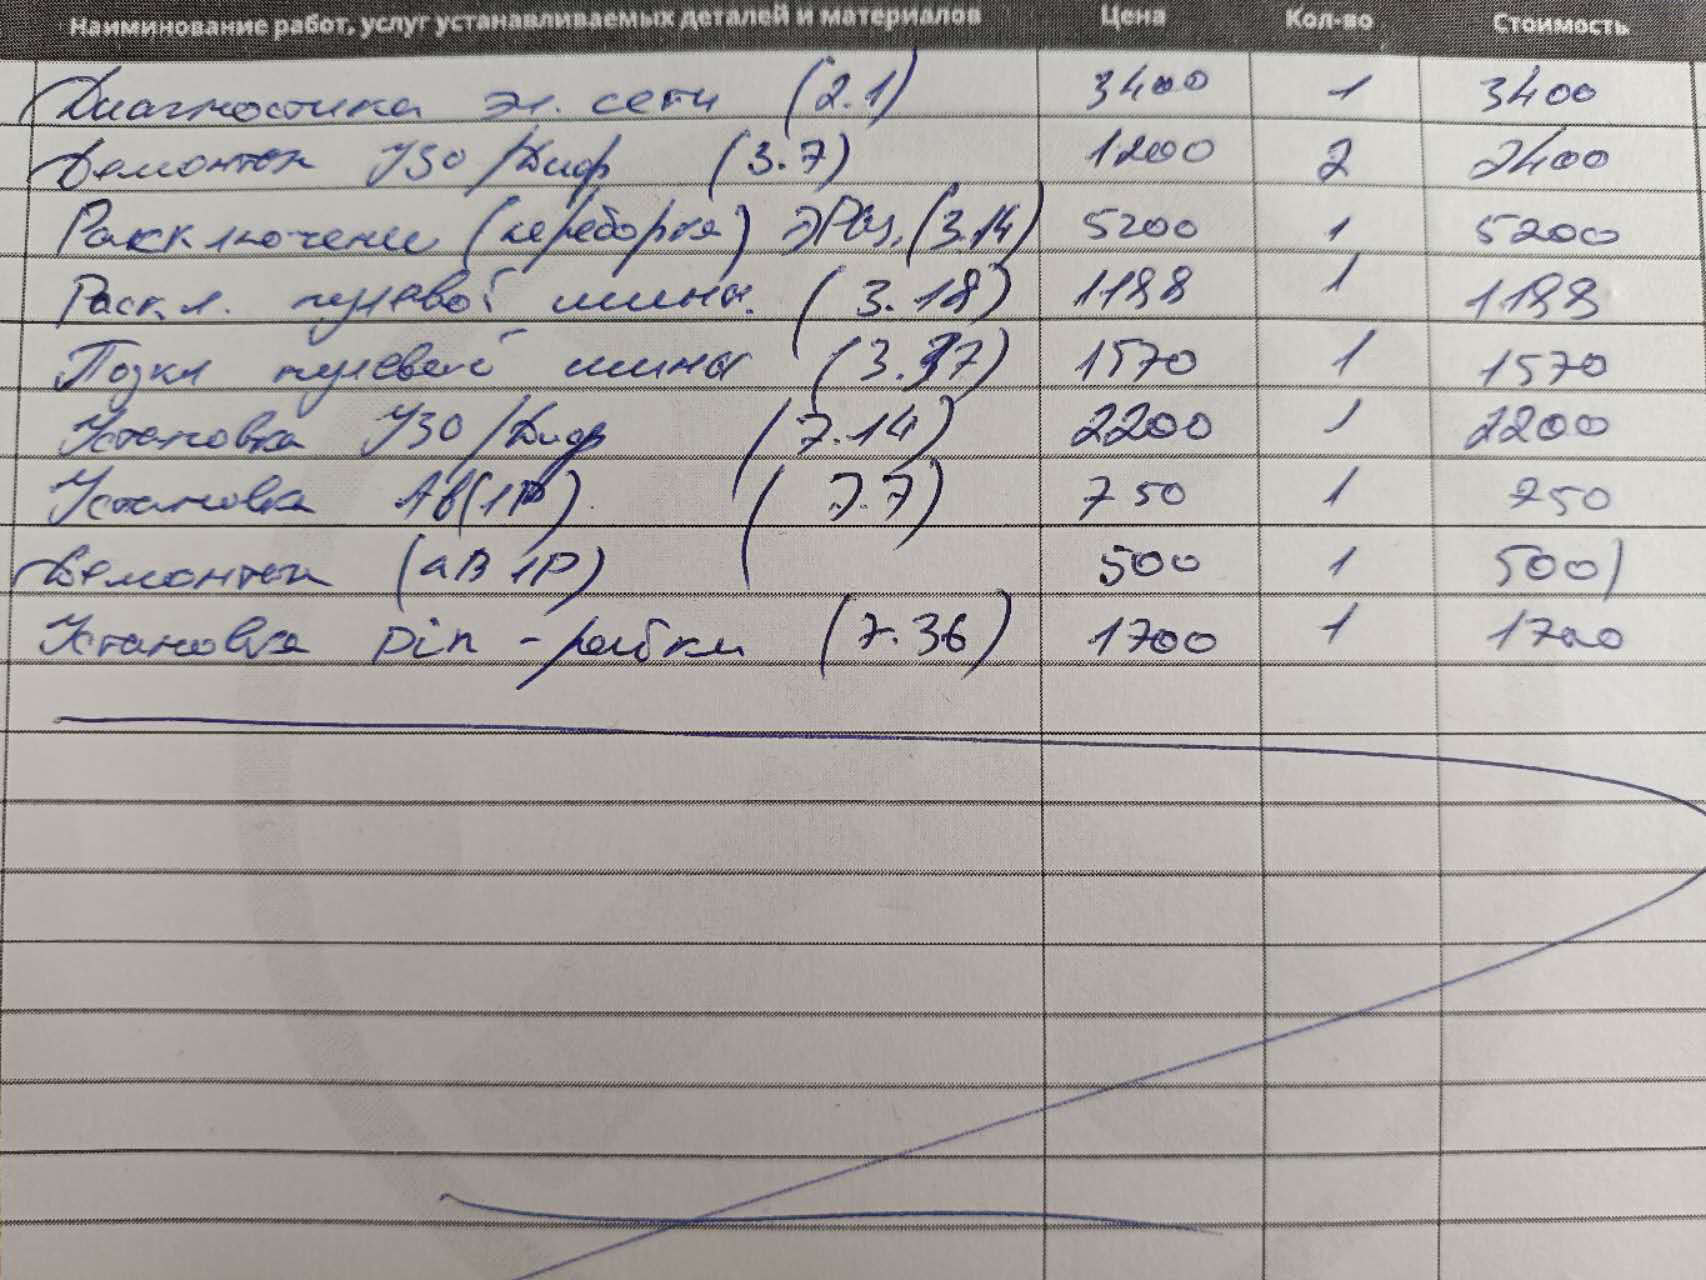 Наиминование работ, услуг устанавливаемых деталей и материалов Цена Кол-во Стоимость
Диагностика эл. сети (2.1) 3400 1 3400
Демонтаж УЗО/Диф (3.7) 1200 2 2400
Расключение (переборка) ЭРщ. (3.14) 5200 1 5200
Раскл. нулевой шины. (3.18) 1188 1 1188
Подкл нулевой шины (3.37) 1570 1 1570
Установка УЗО/Диф (7.14) 2200 1 2200
Установка АВ(1P) (7.7) 750 1 750
Демонтаж (аВ 1P) 500 1 500)
Установка Din-рейки (7.36) 1700 1 1700